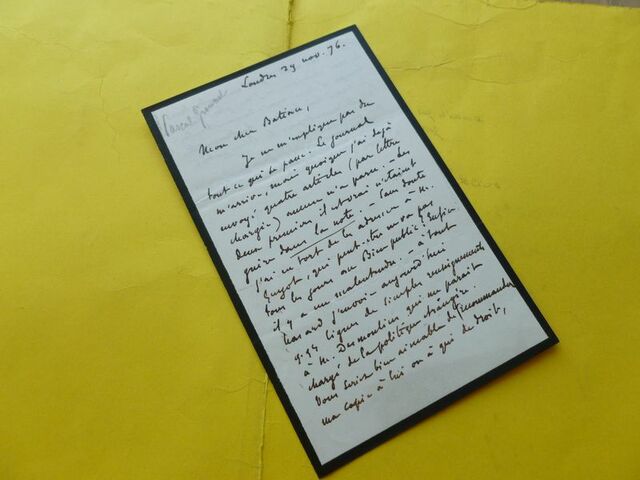 Londres 29 nov. 76.
Pascal
Mon cher Batiau,
Je ne m'explique pas du
tout ce qui se passe. Le journal
m'arrive, mais quoique j'ai déjà
envoyé quatre articles (par lettre
chargée) aucun n'a paru. - Les
deux premiers il est vrai n'étaient
guère dans la note. - Sans doute
j'ai eu tort de les adresser à M.
Guyot, qui peut-être ne va pas
tous les jours au Bien public? Enfin
il y a un malentendu. - à tout
hasard j'envoie aujourd'hui
lignes de simples renseignements
à M. Desmoulins qui me paraît
chargé de la politique étrangère.
Vous seriez bien aimable de recommander
ma copie à lui ou à qui de droit,